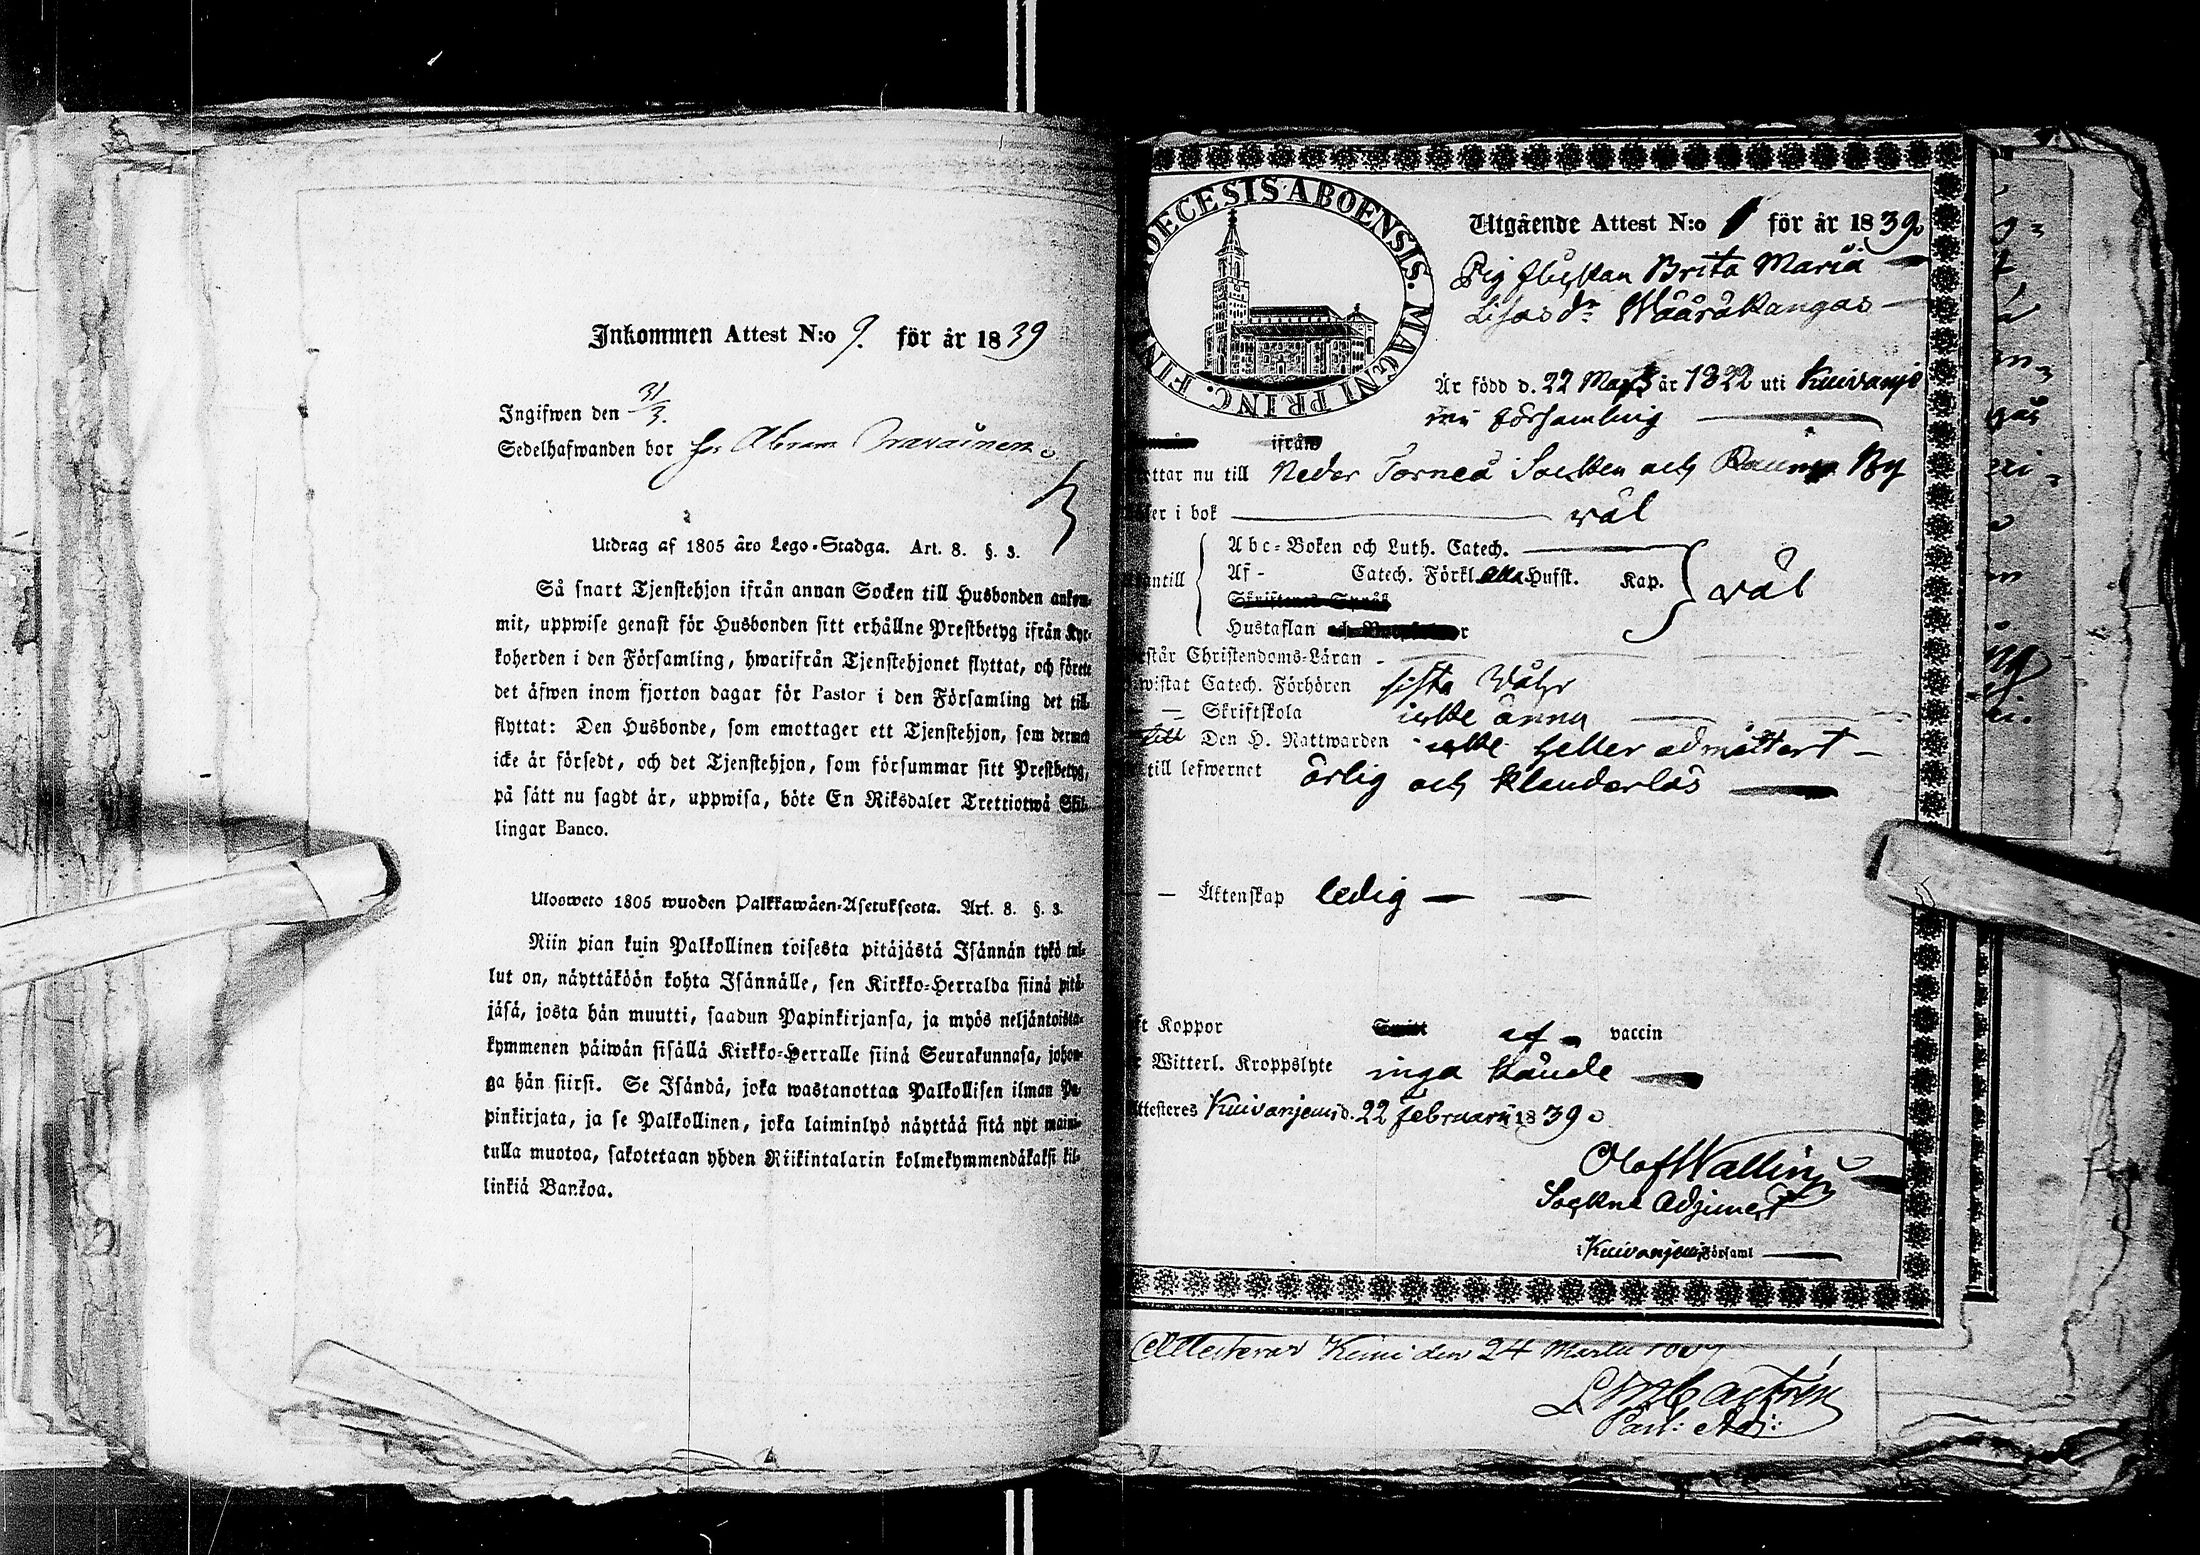 Inkommen Attest N:o 9. för år 1839
Ingifwen den 31/3.
Sedelhafwanden bor hos Abram
Utdrag af 1805 års Lego-Stadga. Art. 8. §. 3.
Så snart Tjenstehjon ifrån annan Socken till Husbonden ankom-
mit, uppwise genast för Husbonden sitt erhållne Prestbetyg ifrån Kyr-
koherden i den Församling, hwarifrån Tjenstehjonet flyttat, och förete
det äfwen inom fjorton dagar för Pastor i den Församling det till-
flyttat: Den Husbonde, som emottager ett Tjenstehjon, som dermed
icke är försedt, och det Tjenstehjon, som försummar sitt Prestbetyg,
på sätt nu sagdt är, uppwisa, böte En Riksdaler Trettiotwå Skil-
lingar Banco.
Ulosweto 1805 wuoden Palkkawäen-Asetuksesta. Art. 8. §. 3.
Niin pian kuin Palkollinen toisesta pitäjästä Isännän tykö tul-
lut on, näyttäköön kohta Isännälle, sen Kirkko-Herralda siinä pitä-
jäsä, josta hän muutti, saadun Papinkirjansa, ja myös neljäntoista-
kymmenen päiwän sisällä Kirkko-Herralle siinä Seurakunnasa, johon-
ga hän siirsi. Se Isändä, joka wastanottaa Palkollisen ilman Pa-
pinkirjata, ja se Palkollinen, joka laiminlyö näyttää sitä nyt maini-
tulla muotoa, sakotetaan yhden Riikintalarin kolmekymmendäkaksi kil-
linkiä Bankoa.
DECESIS ABOENSIS. MAGNI PRINC. FIN
Utgående Attest N:o 1 för år 1839
Pig flickan Brita Maria
Lisas dr Wääräkangas
Är född d. 22 Mars år 1822 uti Kuivanje
mi församling
ifrån
ttar nu till Neder Torneå Socken och Raumo By
er i bok väl
Abc-Boken och Luth. Catech.
antill Af - Catech. Förkl. alla Husst. Kap. väl
Skriftenes Språk
Hustaflan
står Christendoms-Läran
wistat Catech. Förhören sista Wåhr
Skriftskola icke ännu
till Den H. Nattwarden icke heller admittert
till lefwernet ärlig och klanderlös
Äktenskap ledig
ft Koppor af vaccin
Witterl. Kroppslyte inga kände
ttesteres Kuivanjemi d. 22 Februarii 1839
Olof Wallin
Sockne Adjunct
i Kuivanjemi Församl
Attesteras Kimi den 24 Martii 1839
L M Castrén
Past: Adj: